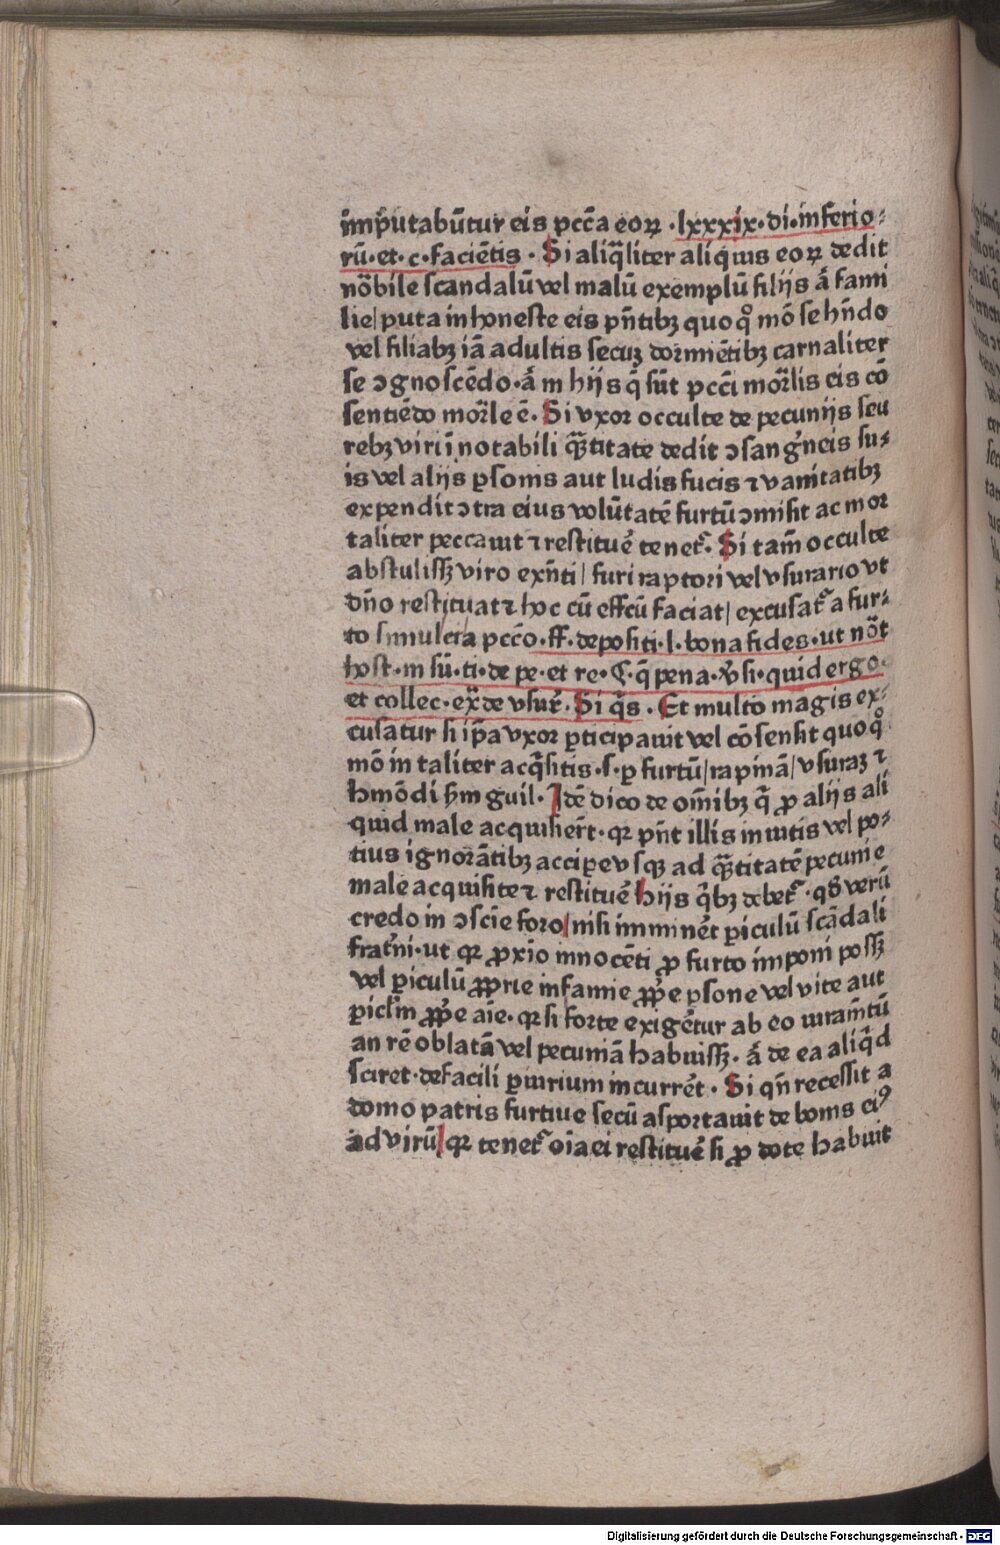 imputabūtur eis pcc̄a eoꝝ ·lxxxix·di·inferio⸗
rū·et·c·faciētis · Si aliq̄liter aliquis eoꝝ dedit
nōbile scandalū vel malū exemplū filijs a᷑ fami
lie/puta inhoneste eis pn̄tibꝫ quoqꝫ mō se hn̄do
vel filiabꝫ iā adultis secuꝫ dormiētibꝫ carnaliter
se ↄgnoscēdo·a᷑ in hijs q̄ sūt pcc̄i mor̄lis eis cō
sentiēdo mor̄le ē· Si vxor occulte de pecunijs seu
rebꝫ viri ī notabili q̄ꝫtitate dedit ↄsanḡneis su⸗
is vel alijs ꝑsonis aut ludis fucis ⁊ vanitatibꝫ
expendit ↄtra eius volūtatē furtū ↄmisit ac mor
taliter peccauit ⁊ restituē tenet᷑· Si tam̄ occulte
abstulissꝫ viro exn̄ti/ furi raptori vel vsurario vt
dn̄o restituat ⁊ hoc cū effcū faciat/ excusat᷑ a fur⸗
to simulcū a pcc̄o·ff·depositi·l·bona fides·ut nōt
host·in sū·ti·de pe·et re·ꝯ·q̄ pena·v̄si·quid ergo·
et collec·ex̄ de vsur̄· Si q̄s · Et multo magis ex⸗
cusatur si ip̄a vxor ꝑticipauit vel cōsensit quoqꝫ
mō in taliter acq̄sitis·s·ꝑ furtū/rapinā/vsuraꝫ ⁊
hmōdi sm̄ guil· Idē dico de om̄ibꝫ q̄ ꝓ alijs ali
quid male acquisiert̄·qꝛ pn̄t illis inuitis vel po⸗
tius ignorātibꝫ acciꝑe vsqꝫ ad q̄ꝫtitatē pecunie
male acquisite ⁊ restituē hijs q̄bꝫ debet᷑·qd̄ verū
credo in ↄscīe foro/nisi immineēt ꝑiculū scādali
frat̄ni·ut qꝛ ꝓxīo innocēti ꝓ furto imponi possꝫ
vel ꝑiculū ꝓprie infamie ꝓp̄e ꝑsone vel vite aut
ꝑicl̄m ꝓp̄e aīe·qꝛ si forte exigēt̄ur ab eo iuram̄tū
an rē oblatā vel pecuniā habuissꝫ· a᷑ de ea aliq̄d
sciret·defacili ꝑiurium incurrēt· Si qn̄ recessit a
domo patris furtiue secū asportauit de bonis eiꝰ
ad virū/ qꝛ tenet᷑ oīa ei restituē si ꝓ dote habuit
Digitalisierung gefördert durch die Deutsche Forschungsgemeinschaft - DFG